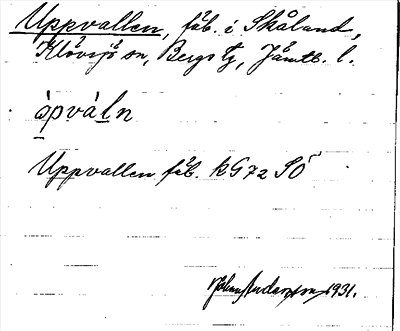 Uppvallen, fäb. i Skåland,
Klövsjö sn, Bergs tg, Jämtl. l.
òpváln
Uppvallen fäb. KG72 SÖ
Johan Andersson 1931.